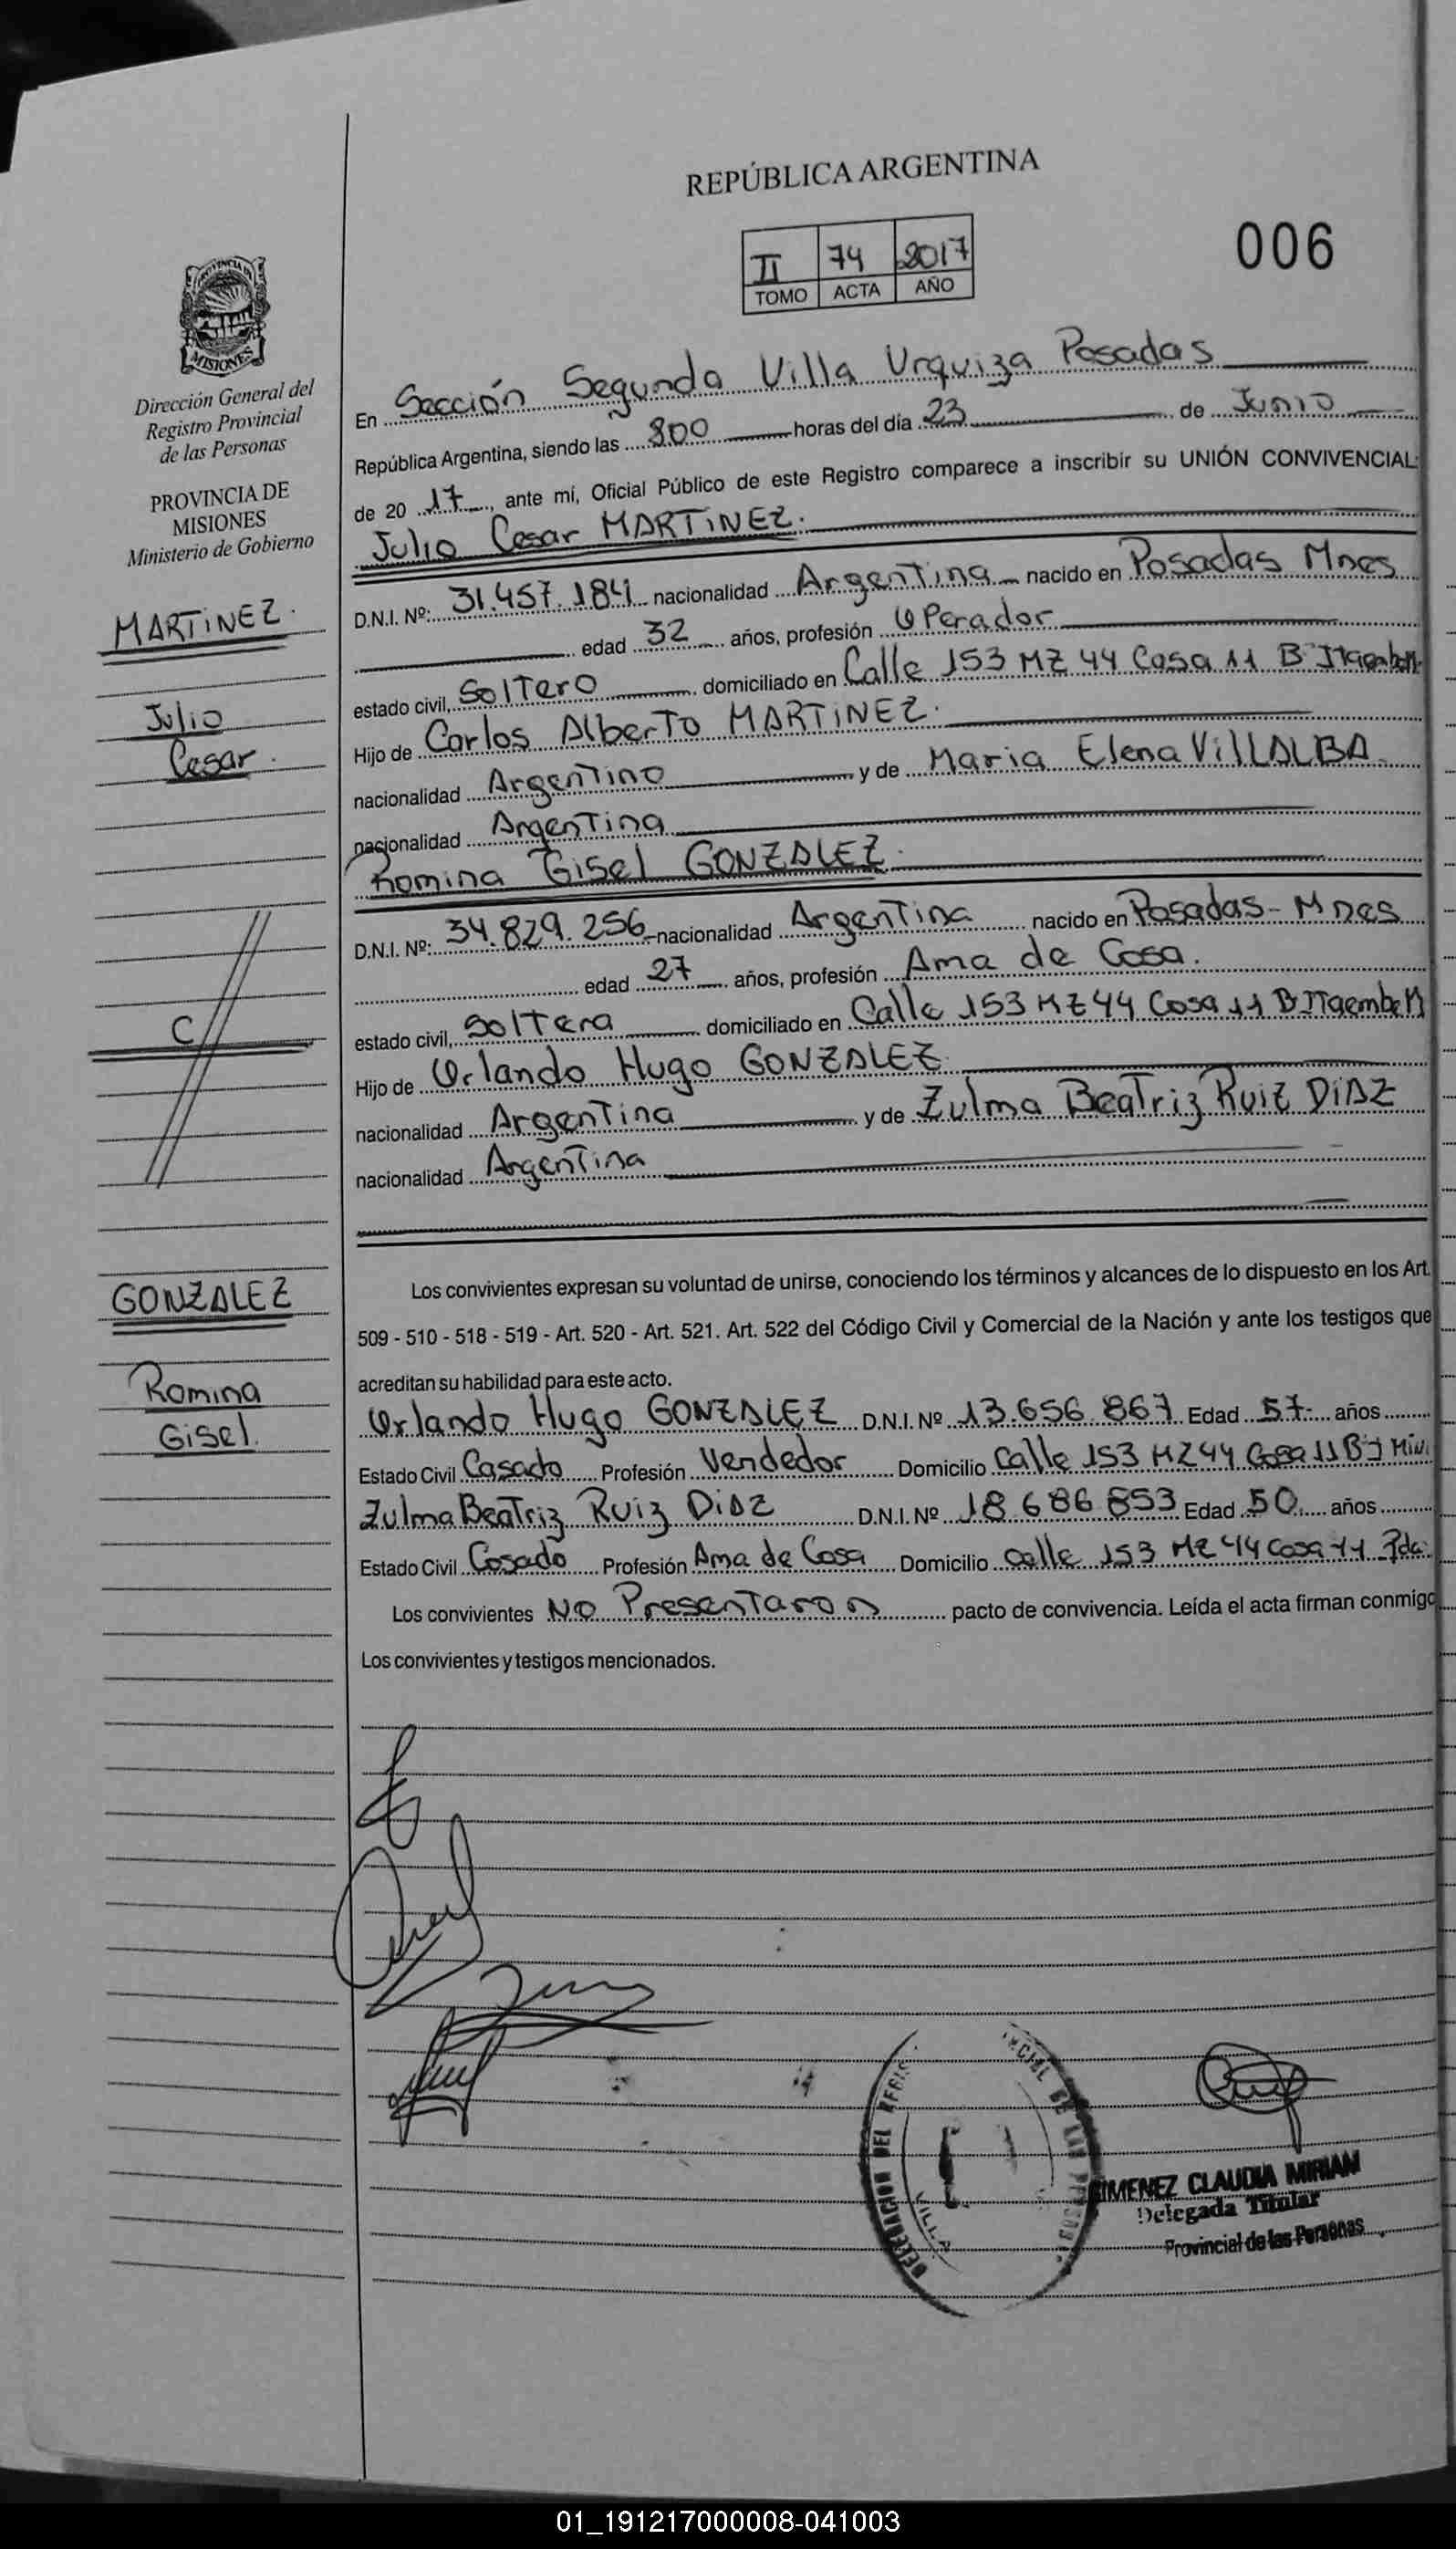 REPÚBLICA ARGENTINA
II 74 2017
TOMO ACTA AÑO
006
PROVINCIA DE
MISIONES
Dirección General del
Registro Provincial
de las Personas
PROVINCIA DE
MISIONES
Ministerio de Gobierno
MARTINEZ.
Julio
Cesar.
C
GONZALEZ
Romina
Gisel.
En Sección Segunda Villa Urquiza Posadas
República Argentina, siendo las 800 horas del día 23 de Junio
de 20 17, ante mí, Oficial Público de este Registro comparece a inscribir su UNIÓN CONVIVENCIAL:
Julio Cesar MARTINEZ.
D.N.I. Nº: 31.457.184 nacionalidad Argentina nacido en Posadas Mnes
edad 32 años, profesión Operador
estado civil, Soltero domiciliado en Calle 153 MZ 44 Casa 11 B
Hijo de Carlos Alberto MARTINEZ.
nacionalidad Argentino y de Maria Elena VILLALBA
nacionalidad Argentina
Romina Gisel GONZALEZ.
D.N.I. Nº: 34.829.256 nacionalidad Argentina nacido en Posadas - Mnes
edad 27 años, profesión Ama de Casa.
estado civil, Soltera domiciliado en Calle 153 MZ 44 Casa 11 B
Hijo de Orlando Hugo GONZALEZ
nacionalidad Argentina y de Zulma Beatriz Ruiz DIAZ
nacionalidad Argentina
Los convivientes expresan su voluntad de unirse, conociendo los términos y alcances de lo dispuesto en los Art.
509 - 510 - 518 - 519 - Art. 520 - Art. 521. Art. 522 del Código Civil y Comercial de la Nación y ante los testigos que
acreditan su habilidad para este acto.
Orlando Hugo GONZALEZ D.N.I. Nº 13.656.867 Edad 57 años
Estado Civil Casado Profesión Vendedor Domicilio Calle 153 MZ 44 Casa 11 B
Zulma Beatriz Ruiz DIAZ D.N.I. Nº 18.686.853 Edad 50 años
Estado Civil Casado Profesión Ama de Casa Domicilio Calle 153 MZ 44 Casa 11 Pda
Los convivientes NO Presentaron pacto de convivencia. Leída el acta firman conmigo
Los convivientes y testigos mencionados.
DELEGACION DEL
VILLA
JIMENEZ CLAUDIA MIRIAM
Delegada Titular
Provincial de las Personas
01_191217000008-041003